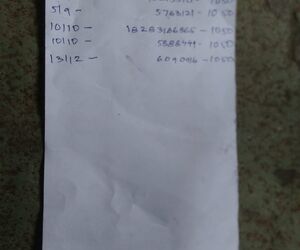 1050
5/9 - 5763121-1050
10/10 - 18283186865-1050
10/10 - 5888441-1050
13/12 - 6090916-1050